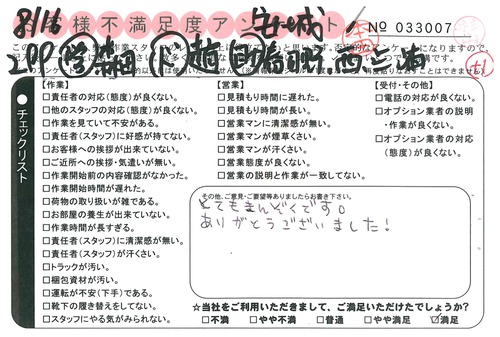 8/16
お客様不満足度アンケート
No 033007
【作業】
□責任者の対応(態度)が良くない。
□他のスタッフの対応(態度)が良くない。
□作業を見ていて不安がある。
□責任者(スタッフ)に好感が持てない。
□お客様への挨拶が出来ていない。
□ご近所への挨拶・気遣いが無い。
□作業開始前の内容確認がなかった。
□作業開始時間が遅れた。
□荷物の取り扱いが雑である。
□お部屋の養生が出来ていない。
□作業時間が長すぎる。
□責任者(スタッフ)に清潔感が無い。
□責任者(スタッフ)が汗くさい。
□トラックが汚い。
□梱包資材が汚い。
□運転が不安(下手)である。
□靴下の履き替えをしてない。
□スタッフにやる気がみられない。
【営業】
□見積もり時間に遅れた。
□見積もり時間が長い。
□営業マンに清潔感が無い。
□営業マンが煙草くさい。
□営業マンが汗くさい。
□営業態度が良くない。
□営業の説明と作業が一致してない。
【受付・その他】
□電話の対応が良くない。
□オプション業者の説明
・作業が良くない。
□オプション業者の対応
(態度)が良くない。
チェックリスト
その他、ご意見・ご要望等ありましたらお書き下さい。
とてもまんぞくです。
ありがとうございました!
☆当社をご利用いただきまして、ご満足いただけたでしょうか?
□不満 □やや不満 □普通 □やや満足 ☑満足